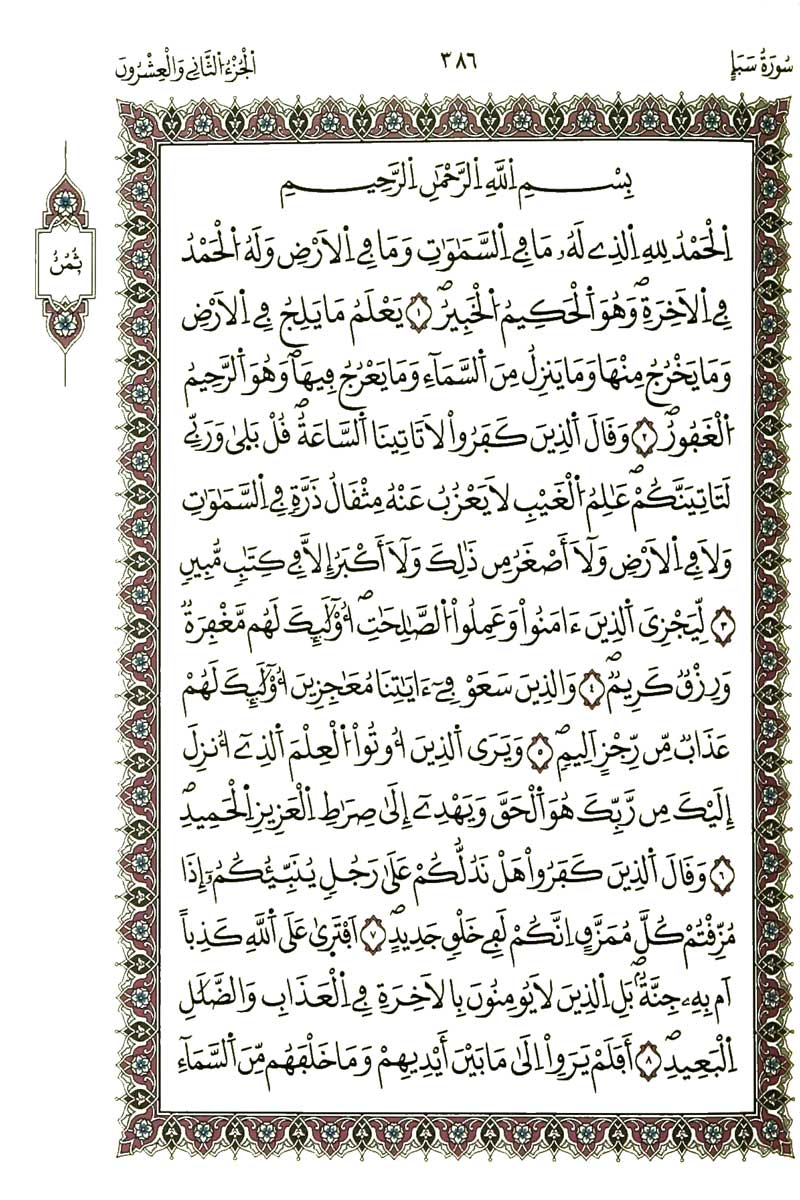 سُورَةُ سَبَإٍ
٣٨٦
اَلْجُزْءُ اَلثَّانِي وَالْعِشْرُونَ
بِسْمِ اِللَّهِ اِلرَّحْمَٰنِ اِلرَّحِيمِ
ثُمُنُ
اِلْحَمْدُ لِلهِ اِلذِے لَهُۥ مَا فِے اِلسَّمَٰوَٰتِ وَمَا فِے اِلَارْضِ وَلَهُ اُلْحَمْدُ
فِے اِلَاخِرَةِۖ وَهُوَ اَلْحَكِيمُ اُلْخَبِيرُۖ ١ يَعْلَمُ مَا يَلِجُ فِے اِلَارْضِ
وَمَا يَخْرُجُ مِنْهَا وَمَا يَنزِلُ مِنَ اَلسَّمَآءِ وَمَا يَعْرُجُ فِيهَاۖ وَهُوَ اَلرَّحِيمُ
اُلْغَفُورُۖ ٢ وَقَالَ اَلذِينَ كَفَرُواْ لَا تَاتِينَا اَلسَّاعَةُۖ قُلْ بَلَىٰ وَرَبِّے
لَتَاتِيَنَّكُمْۖ عَٰلِمُ اُلْغَيْبِ لَا يَعْزُبُ عَنْهُ مِثْقَالُ ذَرَّةٖ فِے اِلسَّمَٰوَٰتِ
وَلَا فِے اِلَارْضِ وَلَآ أَصْغَرُ مِن ذَٰلِكَ وَلَآ أَكْبَرُ إِلَّا فِے كِتَٰبٖ مُّبِينٖ
٣ لِّيَجْزِىَ اَلذِينَ ءَامَنُواْ وَعَمِلُواْ اُلصَّٰلِحَٰتِۖ أُوْلَٰٓئِكَ لَهُم مَّغْفِرَةٞ
وَرِزْقٞ كَرِيمٞۖ ٤ وَالذِينَ سَعَوْ فِےٓ ءَايَٰتِنَا مُعَٰجِزِينَ أُوْلَٰٓئِكَ لَهُمْ
عَذَابٞ مِّن رِّجْزٍ اَلِيمٖۖ ٥ وَيَرَى اَلذِينَ أُوتُواْ اُلْعِلْمَ اَلذِےٓ أُنزِلَ
إِلَيْكَ مِن رَّبِّكَ هُوَ اَلْحَقَّ وَيَهْدِےٓ إِلَىٰ صِرَٰطِ اِلْعَزِيزِ اِلْحَمِيدِۖ
٦ وَقَالَ اَلذِينَ كَفَرُواْ هَلْ نَدُلُّكُمْ عَلَىٰ رَجُلٖ يُنَبِّئُكُمُۥٓ إِذَا
مُزِّقْتُمْ كُلَّ مُمَزَّقٍ اِنَّكُمْ لَفِے خَلْقٖ جَدِيدٍۖ ٧ اَفْتَرَىٰ عَلَى اَللَّهِ كَذِباً
اَم بِهِۦ جِنَّةُۢۖ بَلِ اِلذِينَ لَا يُومِنُونَ بِالَاخِرَةِ فِے اِلْعَذَابِ وَالضَّلَٰلِ
اِلْبَعِيدِۖ ٨ أَفَلَمْ يَرَوِاْ اِلَىٰ مَا بَيْنَ أَيْدِيهِمْ وَمَا خَلْفَهُم مِّنَ اَلسَّمَآءِ